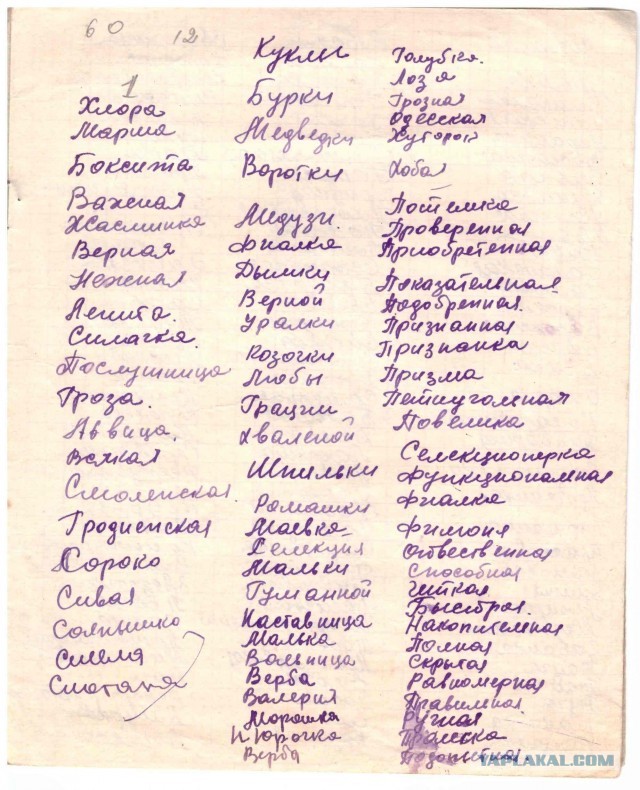 60 12
1
Хлора
Марша
Боксита
Важная
Жасминка
Верная
Нежная
Ленита.
Симагка.
Послушница
Гроза.
Аввица.
Всякая
Смоленская.
Гродненская
Сороко
Сивая
Солнышко
Смела
Сметана
Куклы
Бурки
Медведки
Воротки
Медузы.
Фиалка
Дымки
Верной
Уралки
Козочки
Любы
Грации
Хваленой
Шпильки
Ромашки
Маевка
Селекция
Мальки
Туманной
Наставница
Малька
Вольница
Верба
Валерия
Морошка
Юрочка
Верба
Голубка.
Лозя
Грозная
Одесская
Хуторок
Хобая
Потемка
Проверенная
Приобретенная
Показательная
Подобренная.
Признанная
Признанка
Призма
Пятиугольная
Повелика
Селекционерка
Функциональная
Фиалка
Фимония
Ответственная
Способная
Чёткая
Быстрая.
Накопительная
Полная
Скрытая
Равномерная
Правильная
Ручная
YAPLAKAL.COM